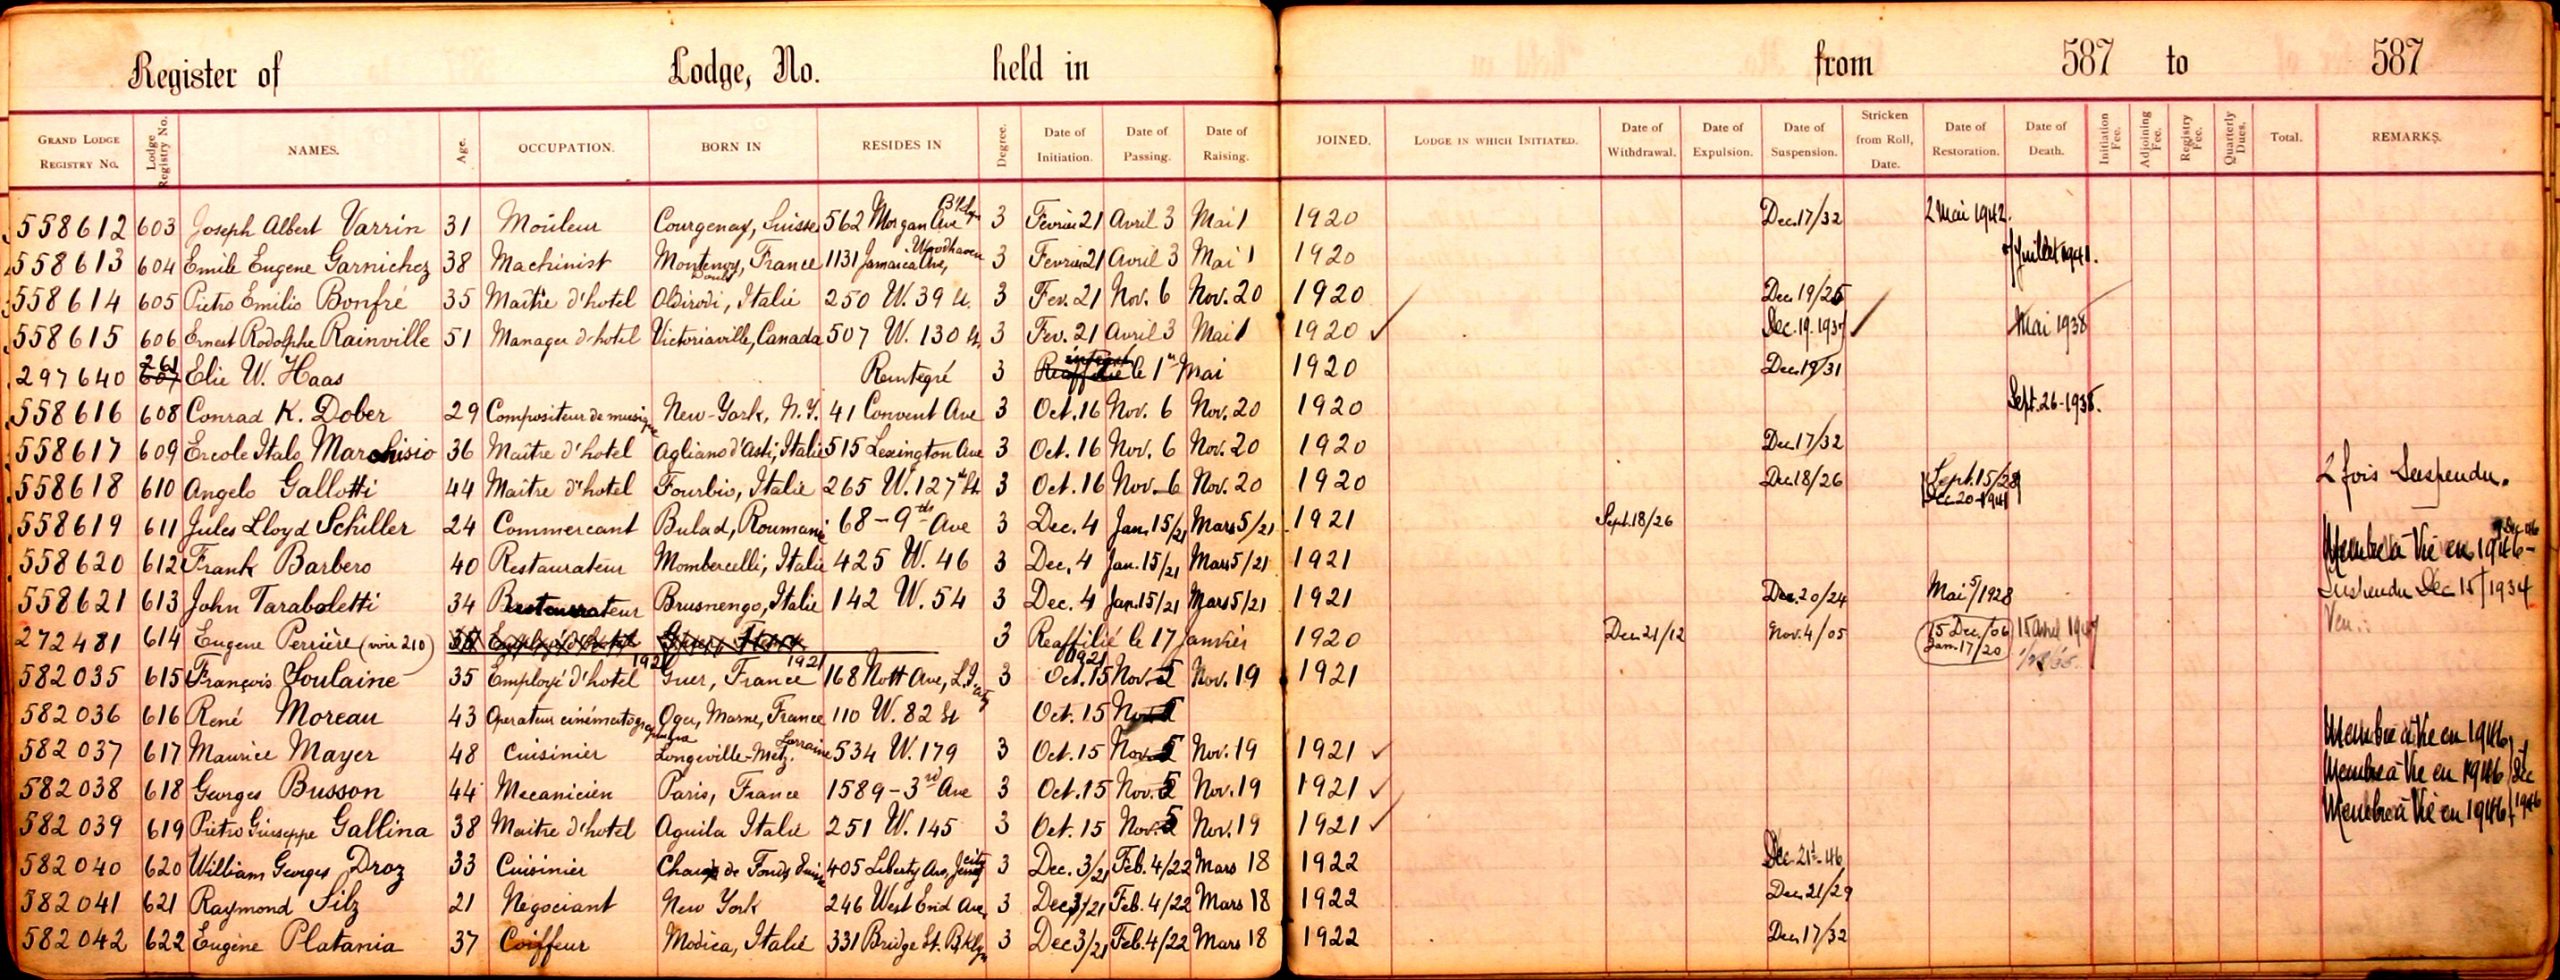 Register of Lodge, No. held in from 587 to 587
GRAND LODGE REGISTRY NO. Lodge Registry No. NAMES. Age. OCCUPATION. BORN IN RESIDES IN Degree. Date of Initiation. Date of Passing. Date of Raising. JOINED. LODGE IN WHICH INITIATED. Date of Withdrawal. Date of Expulsion. Date of Suspension. Stricken from Roll, Date. Date of Restoration. Date of Death. Initiation Fee. Adjoining Fee. Registry Fee. Quarterly Dues. Total. REMARKS.
558612 603 Joseph Albert Varrin 31 Mouleur Courgenay, Suisse 562 Morgan Ave Bklyn 3 Fevrier 21 Avril 3 Mai 1 1920 Dec. 17/32 2 Mai 1942.
558613 604 Emile Eugene Garnichez 38 Machinist Montenoy, Doubs France 1131 Jamaica Ave, Woodhaven 3 Fevrier 21 Avril 3 Mai 1 1920 Juillet 1941.
558614 605 Pietro Emilio Bonfré 35 Maître d'hotel Italie 250 W. 39 st. 3 Fev. 21 Nov. 6 Nov. 20 1920 Dec. 19/25
558615 606 Ernest Rodolphe Rainville 51 Manager d'hotel Victoriaville, Canada 507 W. 130 St. 3 Fev. 21 Avril 3 Mai 1 1920 ✓ Dec. 19. 1937 Mai 1938
297640 261 607 Elie W. Haas Reintegré 3 le 1er Mai 1920 Dec. 19/31
558616 608 Conrad K. Dober 29 Compositeur de musique New-York, N.Y. 41 Convent Ave 3 Oct. 16 Nov. 6 Nov. 20 1920 Sept. 26-1938.
558617 609 Ercole Italo Marchisio 36 Maître d'hotel Agliano d'Asti, Italie 515 Lexington Ave 3 Oct. 16 Nov. 6 Nov. 20 1920 Dec. 17/32
558618 610 Angelo Gallotti 44 Maître d'hotel Fourbio, Italie 265 W. 127th St. 3 Oct. 16 Nov. 6 Nov. 20 1920 Dec. 18/26 Sept. 15/28 Dec. 20-1941 2 fois Suspendu.
558619 611 Jules Lloyd Schiller 24 Commercant Bulad, Roumanie 68-9th Ave 3 Dec. 4 Jan. 15/21 Mars 5/21 1921 Sept. 18/26
558620 612 Frank Barbero 40 Restaurateur Mombercelli, Italie 425 W. 46 3 Dec. 4 Jan. 15/21 Mars 5/21 1921 Membre à Vie en 1946-
558621 613 John Taraboletti 34 Restaurateur Brusnengo, Italie 142 W. 54 3 Dec. 4 Jan. 15/21 Mars 5/21 1921 Dec. 20/24 Mai 5/1928 Suspendu Dec 15/1934
272481 614 Eugene Perrière (voir 210) 3 Reaffilié le 17 Janvier 1920 Dec. 21/12 Nov. 4/05 15 Dec./06 Jan. 17/20 15 avril 1947 Ven.:
582035 615 François Soulaine 35 Employé d'hotel 1921 Guer, France 1921 168 Nott Ave, L.I. City 3 1921 Oct. 15 Nov. 5 Nov. 19 1921
582036 616 René Moreau 43 Operateur cinématographia Oger, Marne, France 110 W. 82 St Oct. 15 Nov. 5
582037 617 Maurice Mayer 48 Cuisinier Longeville-Metz. Lorraine 534 W. 179 3 Oct. 15 Nov. 5 Nov. 19 1921 ✓ Membre à Vie en 1946
582038 618 Georges Busson 44 Mecanicien Paris, France 1589-3rd Ave 3 Oct. 15 Nov. 5 Nov. 19 1921 ✓ Membre à Vie en 1946 Dec
582039 619 Pietro Giuseppe Gallina 38 Maitre d'hotel Aquila Italie 251 W. 145 3 Oct. 15 Nov. 5 Nov. 19 1921 ✓ Membre à Vie en 1946 1946
582040 620 William Georges Droz 33 Cuisinier Chaux de Fonds Suisse 405 Liberty Ave, Jersey City 3 Dec. 3/21 Feb. 4/22 Mars 18 1922 Dec. 21st-46
582041 621 Raymond Silz 21 Negociant New York 246 West End Ave, 3 Dec 3/21 Feb. 4/22 Mars 18 1922 Dec. 21/29
582042 622 Eugène Platania 37 Coiffeur Modica, Italie 331 Bridge St. Bklyn 3 Dec 3/21 Feb. 4/22 Mars 18 1922 Dec. 17/32